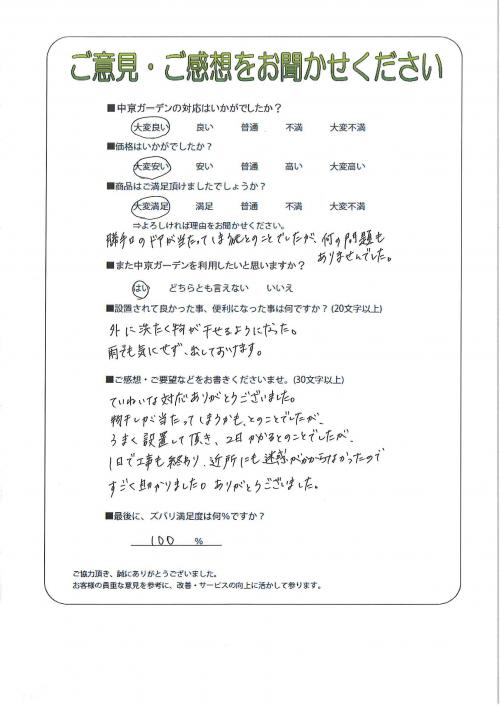 ご意見・ご感想をお聞かせください
■中京ガーデンの対応はいかがでしたか？
大変良い 良い 普通 不満 大変不満
■価格はいかがでしたか？
大変安い 安い 普通 高い 大変高い
■商品はご満足頂けましたでしょうか？
大変満足 満足 普通 不満 大変不満
⇒よろしければ理由をお聞かせください。
勝手口のドアが当たってしまうとのことでしたが、何の問題も
ありませんでした。
■また中京ガーデンを利用したいと思いますか？
はい どちらとも言えない いいえ
■設置されて良かった事、便利になった事は何ですか？(20文字以上)
外に洗たく物が干せるようになった。
雨でも気にせず、出しておけます。
■ご感想・ご要望などをお書きくださいませ。(30文字以上)
ていねいな対応ありがとうございました。
物干しが当たってしまうかも、とのことでしたが、
うまく設置して頂き、2日かかるとのことでしたが、
1日で工事も終わり、近所にも迷惑がかからなかったので
すごく助かりました。ありがとうございました。
■最後に、ズバリ満足度は何%ですか？
100 %
ご協力頂き、誠にありがとうございました。
お客様の貴重な意見を参考に、改善・サービスの向上に活かして参ります。